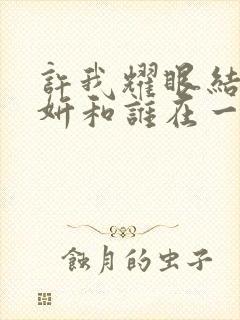 許我耀眼結
妍和誰在一
蝕月的虫子